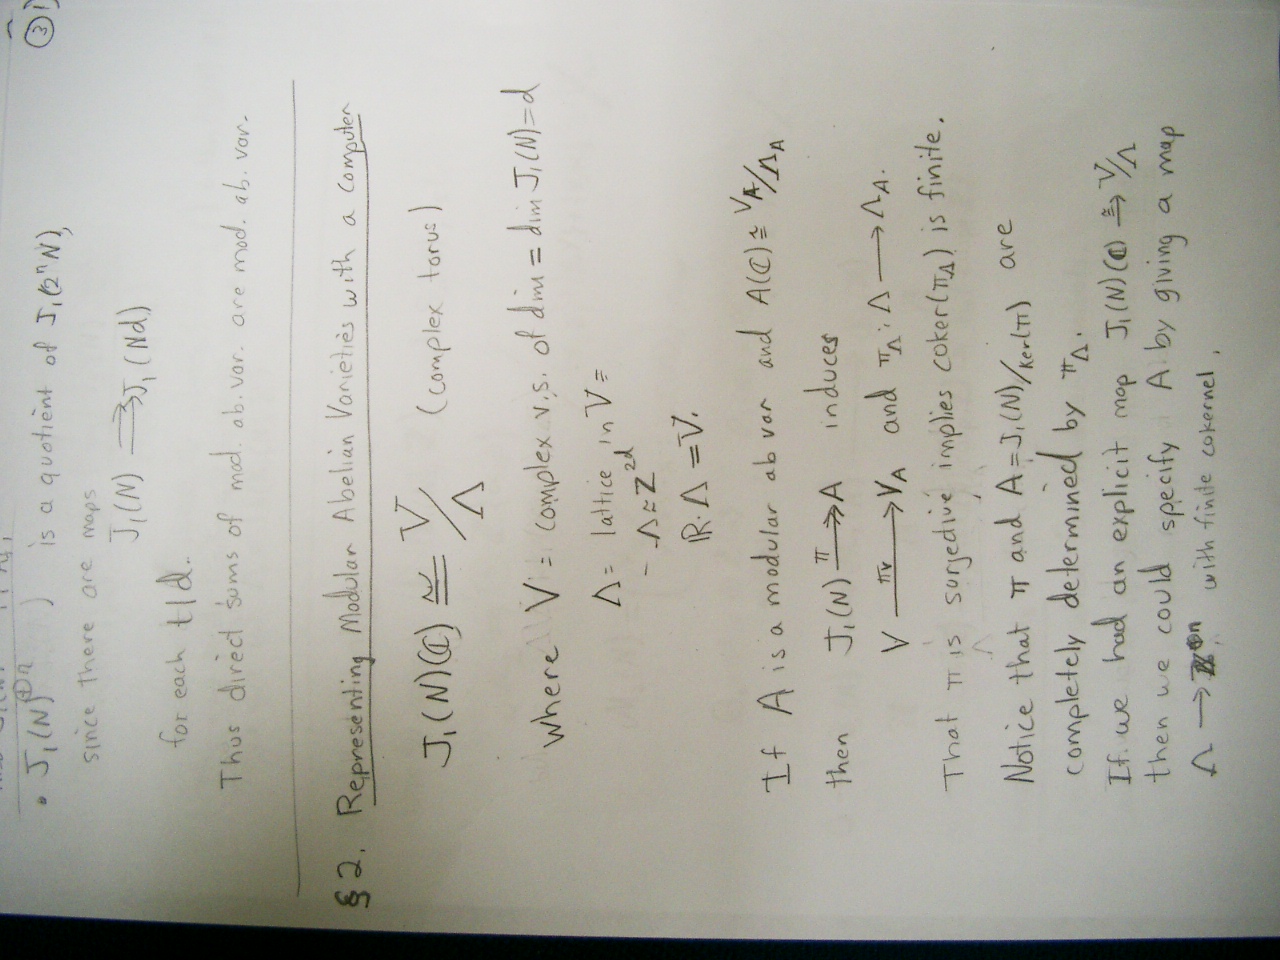 ③
• J₁(N)^⊕n ) is a quotient of J₁(2ⁿN),
since there are maps
J₁(N) ⇉ J₁(Nd)
for each t|d.
Thus direct sums of mod. ab. var. are mod. ab. var.
§2. Representing Modular Abelian Varieties with a Computer
J₁(N)(ℂ) ≅ V/Λ (complex torus)
where V = complex v.s. of dim = dim J₁(N) = d
Λ = lattice in V =
- Λ ≈ Z^2d
ℝ·Λ = V.
If A is a modular ab var and A(ℂ) ≅ V_A/Λ_A
then J₁(N) —π→ A induces
V —π_V→ V_A and π_Λ : Λ → Λ_A.
That π is surjective implies coker(π_Λ) is finite.
Notice that π and A = J₁(N)/ker(π) are
completely determined by π_Λ.
If we had an explicit map J₁(N)(ℂ) ≅→ V/Λ
then we could specify A by giving a map
Λ → with finite cokernel.